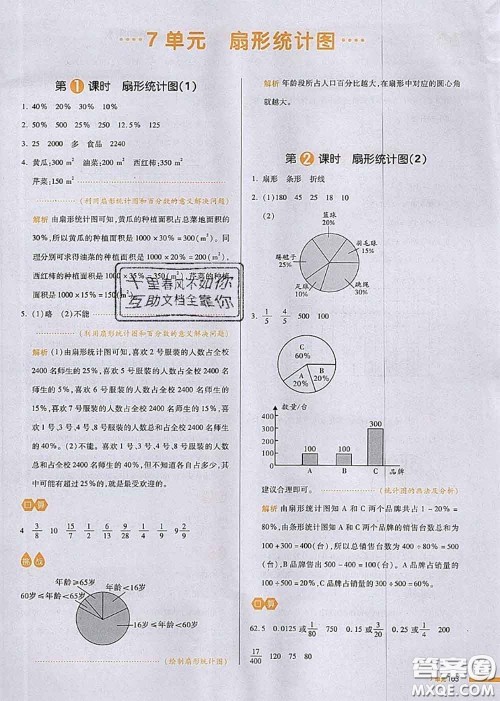 7 单元 扇形统计图
第1课时 扇形统计图(1)
1. 40% 20% 30% 10%
2. 50% 500 25% 250 12.5% 125
3. 25 2000 多 食品 2240
4. 黄瓜:300 m² 油菜:200 m² 西红柿:350 m²
芹菜:150 m²
(利用扇形统计图和百分数的意义解决问题)
解析 由扇形统计图可知,黄瓜的种植面积占总菜地面积的
30%,所以黄瓜的种植面积是 1000×30%=300(m²)。
分别可求得油菜的种植面积是 1000×20%=200(m²),
西红柿的种植面积是 1000×35%=350(m²),芹菜的种植
面积是 1000×15%=150(m²)。
5. (1)略 (2)不能
(利用扇形统计图和百分数的意义解决问题)
解析 (1)由扇形统计图可知,喜欢 2 号服装的人数占全校
2400 名师生的 25%,喜欢 1 号服装的人数占全校 2400 名
师生的 5%,喜欢 3 号、4 号服装的人数分别占全校 2400
名师生的 15%,喜欢 7 号服装的人数占全校 2400 名师生的
40%。(2)不能。喜欢 1 号、3 号、4 号、8 号服装的人数占
全校 2400 名师生的百分比,但不知道喜欢各自占多少,其
中可能有超过 25%的,就是最受欢迎的。
口算
4 3/8 10 15/7 12/5 1/6 1/9 2/9 9 2/9
挑战
年龄≥65岁
年龄<16岁
60岁≤年龄<65岁
16岁≤年龄<60岁
(绘制扇形统计图)
解析 年龄段所占人口百分比越大,在扇形中对应的圆心角
就越大。
第2课时 扇形统计图(2)
1. 扇形 条形 折线
2. (1)180 45 25 18 20
(2)
篮球
羽毛球
踢毽子
足球
跳绳
3. 1/5 4/5 500 100 300
C 60%
A 20%
B 20%
数量/台
400
300
200
100
0
100
100
300
A B C 品牌
建议合理即可。
(统计图的画法及分析)
解析 由扇形统计图知 A 和 C 两个品牌共占 1-20%=
80%,由条形统计图知 A 和 C 两个品牌的销售台数总和为
100+300=400(台),所以总销售台数为 400÷80%=500
(台),B 品牌售出 500-400=100(台)。A 品牌占销量的
100÷500=20%,C 品牌占销量的 300÷500=60%。
口算
62.5 1/80 0.15或3/20 750 0.01 0.325 1/4
17/400 120 75 60
十里春风不如你
互助文档全靠你
103
答案圈
MXQE.COM